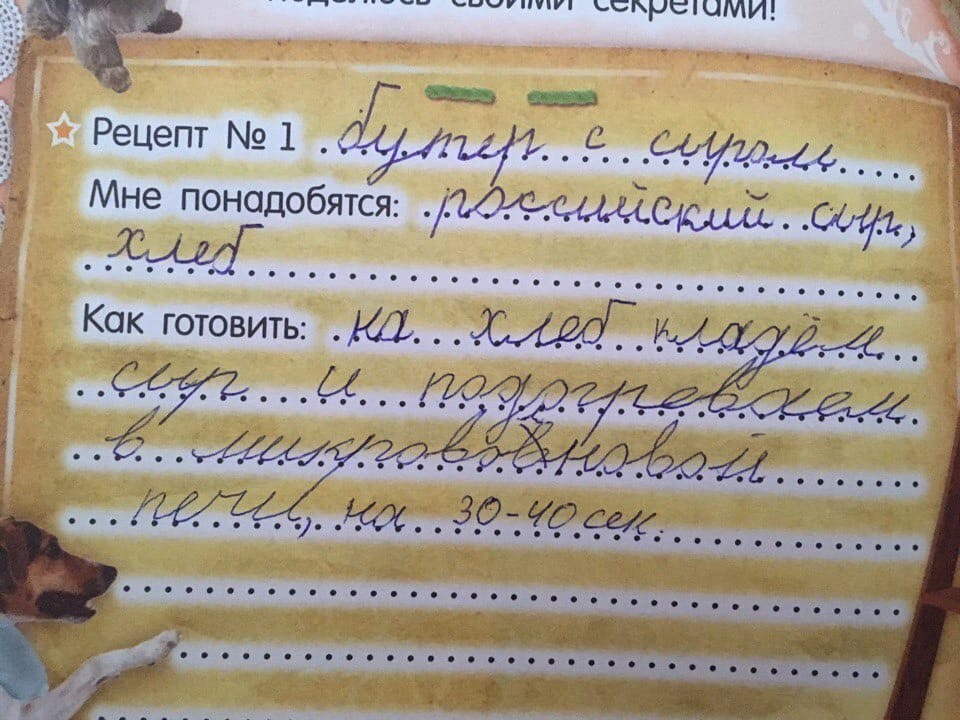 поделюсь своими секретами!
Рецепт № 1 бутер с сыром
Мне понадобятся: российский сыр,
хлеб
Как готовить: на хлеб кладём
сыр и подогреваем
в микроволновой
печи, на 30-40 сек.